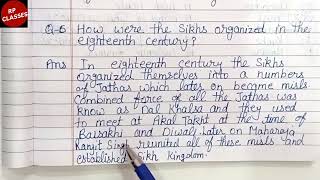 RP
CLASSES
Q-5 How were the Sikhs organized in the
eighteenth century?
Ans In eighteenth century the Sikhs
organized themselves into a numbers
of Jathas which later on became misls.
Combined force of all the Jathas was
know as Dal Khalsa and they used
to meet at Akal Takht at the time of
Baisakhi and Diwali. Later on Maharaja
Ranjit Singh reunited all of these misls and
established Sikh Kingdom.